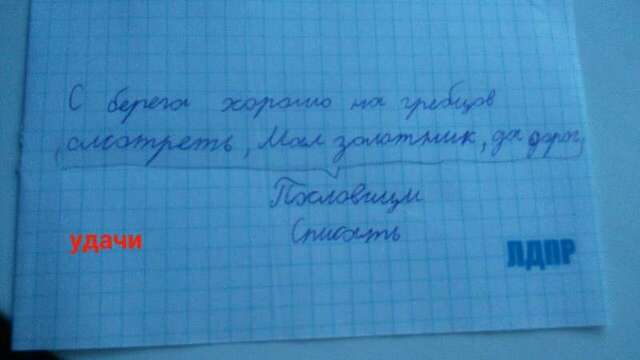 С берега хорошо на гребцов
смотреть, Мал золотник, да дорог
Пословици
Списать
удачи
ЛДПР